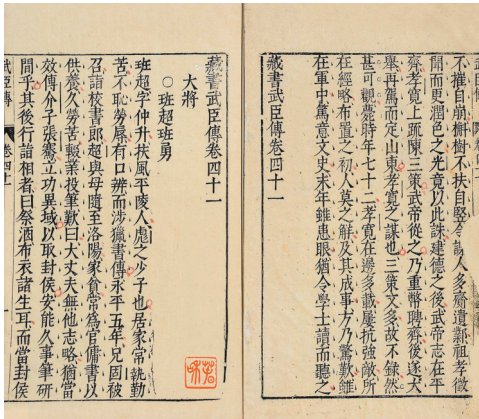 不摧自崩槲樹不扶自竪令諜人多齎遺鄴祖孝徵
聞而更潤色之光竟以此誅建德之後武帝志在平
齊孝寬上疏陳三策武帝從之乃重幣聘齊後遂大
舉再駕而定山東孝寬之謀也三策文多故不錄然
甚可觀薨時年七十二孝寬在邊多載屢抗強敵所
在經略布置之初人莫之解及其成事方乃驚歎雖
在軍中篤意文史末年雖患眼猶令學士讀而聽之
藏書武臣傳卷四十一
藏書武臣傳卷四十一
大將
○班超班勇
班超字仲升扶風平陵人彪之少子也居家常執勤
苦不恥勞辱有口辨而涉獵書傳永平五年兄固被
召詣校書郎超與母隨至洛陽家貧常爲官傭書以
供養久勞苦輟業投筆歎曰大丈夫無他志略猶當
效傅介子張騫立功異域以取封侯安能久事筆研
間乎其後行詣相者曰祭酒布衣諸生耳而當封侯
武臣傳